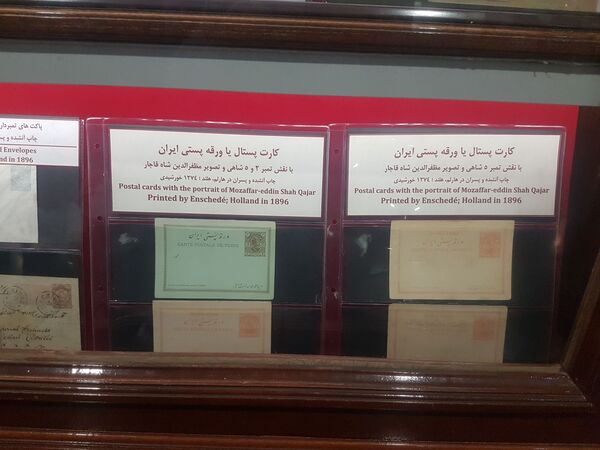 پاکت های تمبردار
چاپ آنشده و پسر
d Envelopes
and in 1896
کارت پستال یا ورقه پستی ایران
با نقش تمبر ۲ و ۵ شاهی و تصویر مظفرالدین شاه قاجار
چاپ آنشده و پسران در هارلم، هلند ؛ ۱۲۷٤ خورشیدی
Postal cards with the portrait of Mozaffar-eddin Shah Qajar
Printed by Enschedé; Holland in 1896
کارت پستال یا ورقه پستی ایران
با نقش تمبر ۵ شاهی و تصویر مظفرالدین شاه قاجار
چاپ آنشده و پسران در هارلم، هلند ؛ ۱۲۷٤ خورشیدی
Postal cards with the portrait of Mozaffar-eddin Shah Qajar
Printed by Enschedé; Holland in 1896
ورقه پستی ایران
CARTE POSTALE DE PERSE
ورقه پستی ایران